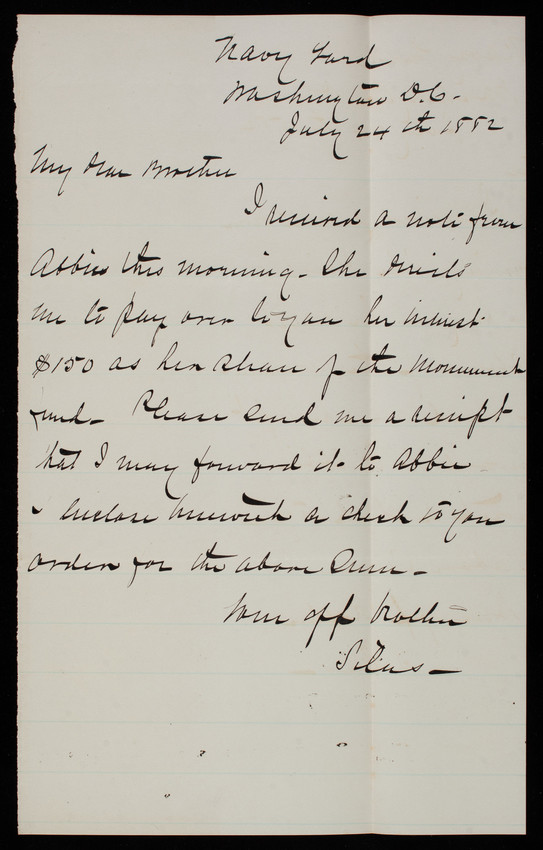 Navy Yard
Washington D.C.
July 24th 1882
My Dear Brother
I received a note from
Abbie this morning. She directs
me to pay over to you her interest
$150 as her share of the Monument
fund. Please send me a receipt
that I may forward it to Abbie
I enclose herewith a check to your
order for the above sum.
Your aff brother
Silas